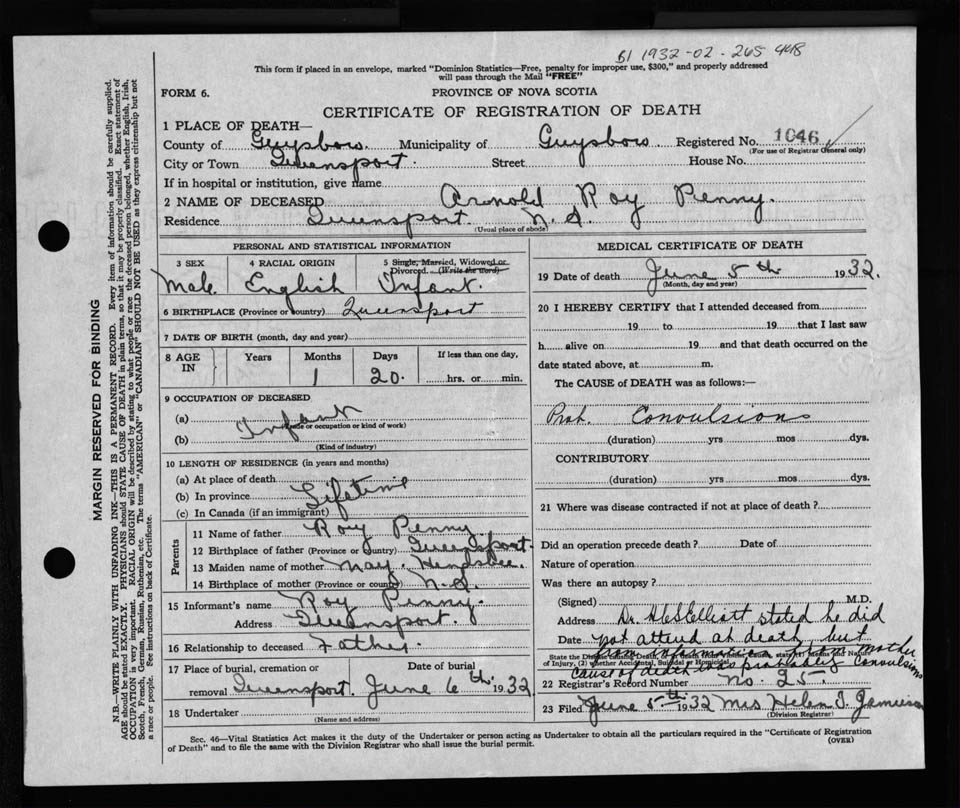 B1 1932-02-265 448
This form if placed in an envelope, marked "Dominion Statistics—Free, penalty for improper use, $300," and properly addressed
will pass through the Mail "FREE"
FORM 6.
PROVINCE OF NOVA SCOTIA
CERTIFICATE OF REGISTRATION OF DEATH
1 PLACE OF DEATH—
County of Guysboro. Municipality of Guysboro Registered No. 1046
(For use of Registrar General only)
City or Town Queensport. Street House No.
If in hospital or institution, give name
2 NAME OF DECEASED Arnold Roy Penny.
Residence Queensport. N.S.
(Usual place of abode)
PERSONAL AND STATISTICAL INFORMATION
3 SEX 4 RACIAL ORIGIN 5 Single, Married, Widowed or Divorced. (Write the word)
Male English Infant.
6 BIRTHPLACE (Province or country) Queensport
7 DATE OF BIRTH (month, day and year)
8 AGE IN Years Months Days If less than one day,
1 20. hrs. or min.
9 OCCUPATION OF DECEASED
(a) Infant
(Trade or occupation or kind of work)
(b)
(Kind of industry)
10 LENGTH OF RESIDENCE (in years and months)
(a) At place of death
(b) In province Lifetime
(c) In Canada (if an immigrant)
Parents
11 Name of father Roy Penny
12 Birthplace of father (Province or country) Queensport.
13 Maiden name of mother May. Hendsbee.
14 Birthplace of mother (Province or country) N.S.
15 Informant's name Roy Penny.
Address Queensport.
16 Relationship to deceased Father
17 Place of burial, cremation or Date of burial
removal Queensport. June 6th. 1932
18 Undertaker
(Name and address)
MEDICAL CERTIFICATE OF DEATH
19 Date of death June 5th 1932.
(Month, day and year)
20 I HEREBY CERTIFY that I attended deceased from
19 to 19 that I last saw
h alive on 19 and that death occurred on the
date stated above, at m.
The CAUSE of DEATH was as follows:—
Prob. Convulsions
(duration) yrs mos dys.
CONTRIBUTORY
(duration) yrs mos dys.
21 Where was disease contracted if not at place of death?
Did an operation precede death? Date of
Nature of operation
Was there an autopsy?
(Signed) M.D.
Address Dr. Elliott stated he did
Date not attend at death, but
from information mother
State the Disease causing Death,
of Injury, (2) whether Accidental, Suicidal or Homicidal
cause of death was probably Convulsions
22 Registrar's Record Number No. 25.
23 Filed June 5th 1932 Mrs Helen J. Jamieson
(Division Registrar)
Sec. 46—Vital Statistics Act makes it the duty of the Undertaker or person acting as Undertaker to obtain all the particulars required in the "Certificate of Registration
of Death" and to file the same with the Division Registrar who shall issue the burial permit.
(OVER)
MARGIN RESERVED FOR BINDING
N.B.—WRITE PLAINLY WITH UNFADING INK—THIS IS A PERMANENT RECORD. Every item of information should be carefully supplied.
AGE should be stated EXACTLY. PHYSICIANS should STATE CAUSE OF DEATH in plain terms, so that it may be properly classified. Exact statement of
OCCUPATION is very important. RACIAL ORIGIN will be described by stating to what people or race the deceased person belonged, whether English, Irish,
Scotch, French, German, Russian, Ruthenian, etc. The terms "AMERICAN" or "CANADIAN" SHOULD NOT BE USED as they express citizenship but not
a race or people. See instructions on back of Certificate.